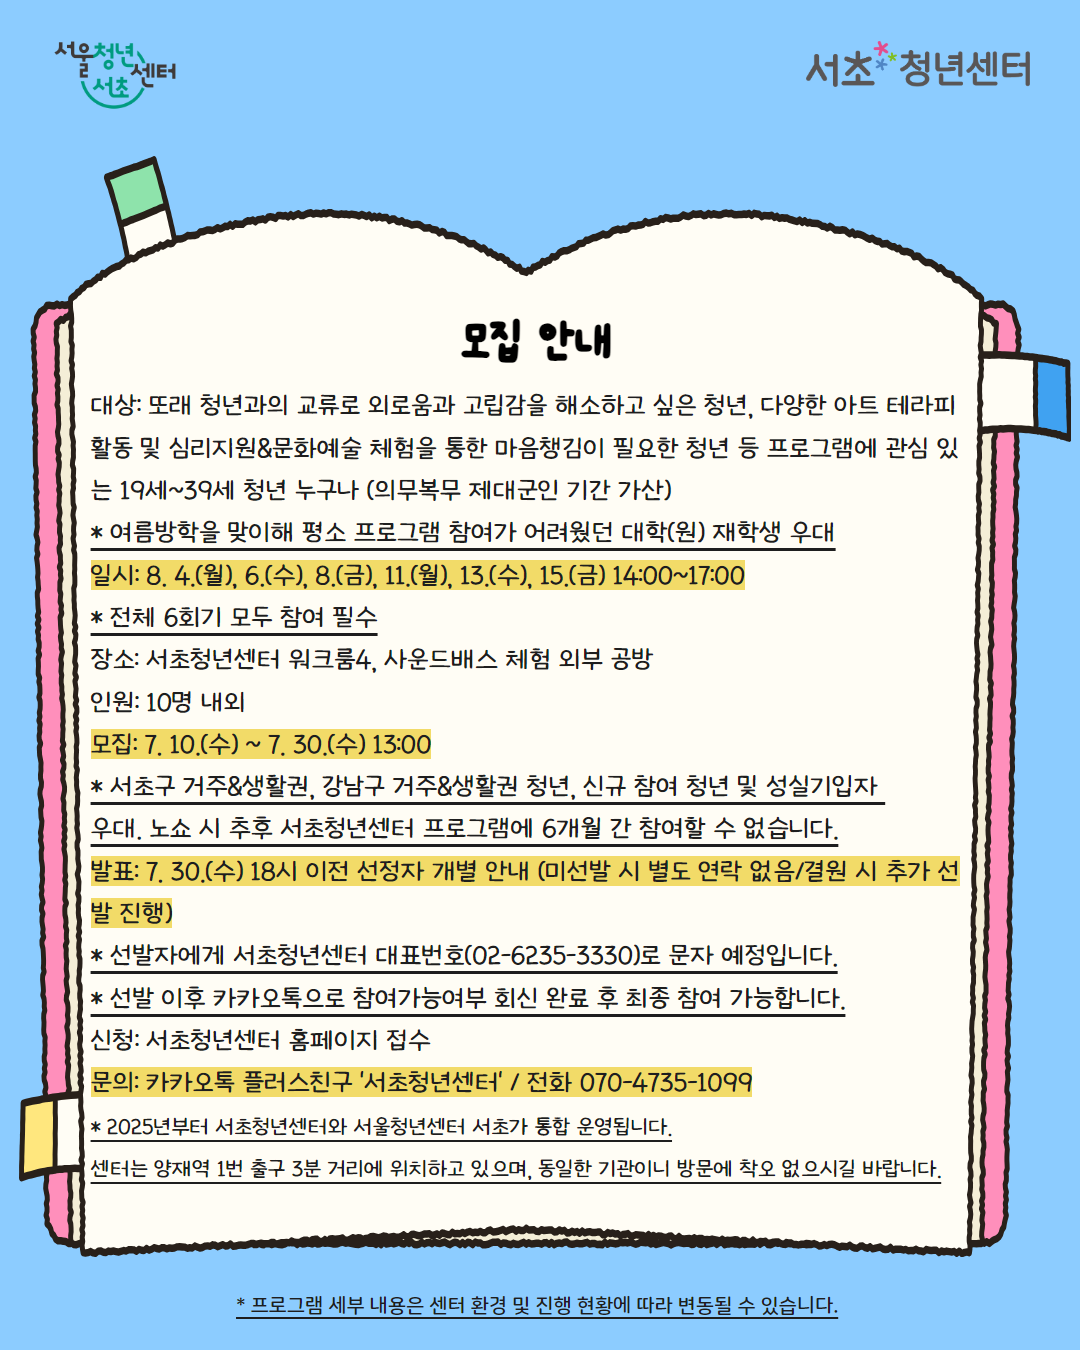 서울청년센터 서초
서초청년센터
모집 안내
대상: 또래 청년과의 교류로 외로움과 고립감을 해소하고 싶은 청년, 다양한 아트 테라피
활동 및 심리지원&문화예술 체험을 통한 마음챙김이 필요한 청년 등 프로그램에 관심 있
는 19세~39세 청년 누구나 (의무복무 제대군인 기간 가산)
* 여름방학을 맞이해 평소 프로그램 참여가 어려웠던 대학(원) 재학생 우대
일시: 8. 4.(월), 6.(수), 8.(금), 11.(월), 13.(수), 15.(금) 14:00~17:00
* 전체 6회기 모두 참여 필수
장소: 서초청년센터 워크룸4, 사운드배스 체험 외부 공방
인원: 10명 내외
모집: 7. 10.(수) ~ 7. 30.(수) 13:00
* 서초구 거주&생활권, 강남구 거주&생활권 청년, 신규 참여 청년 및 성실기입자
우대. 노쇼 시 추후 서초청년센터 프로그램에 6개월 간 참여할 수 없습니다.
발표: 7. 30.(수) 18시 이전 선정자 개별 안내 (미선발 시 별도 연락 없음/결원 시 추가 선
발 진행)
* 선발자에게 서초청년센터 대표번호(02-6235-3330)로 문자 예정입니다.
* 선발 이후 카카오톡으로 참여가능여부 회신 완료 후 최종 참여 가능합니다.
신청: 서초청년센터 홈페이지 접수
문의: 카카오톡 플러스친구 '서초청년센터' / 전화 070-4735-1099
* 2025년부터 서초청년센터와 서울청년센터 서초가 통합 운영됩니다.
센터는 양재역 1번 출구 3분 거리에 위치하고 있으며, 동일한 기관이니 방문에 착오 없으시길 바랍니다.
* 프로그램 세부 내용은 센터 환경 및 진행 현황에 따라 변동될 수 있습니다.